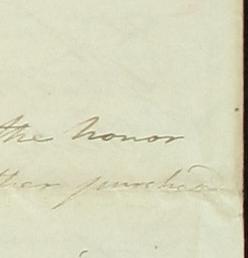 the honor
ther purchase